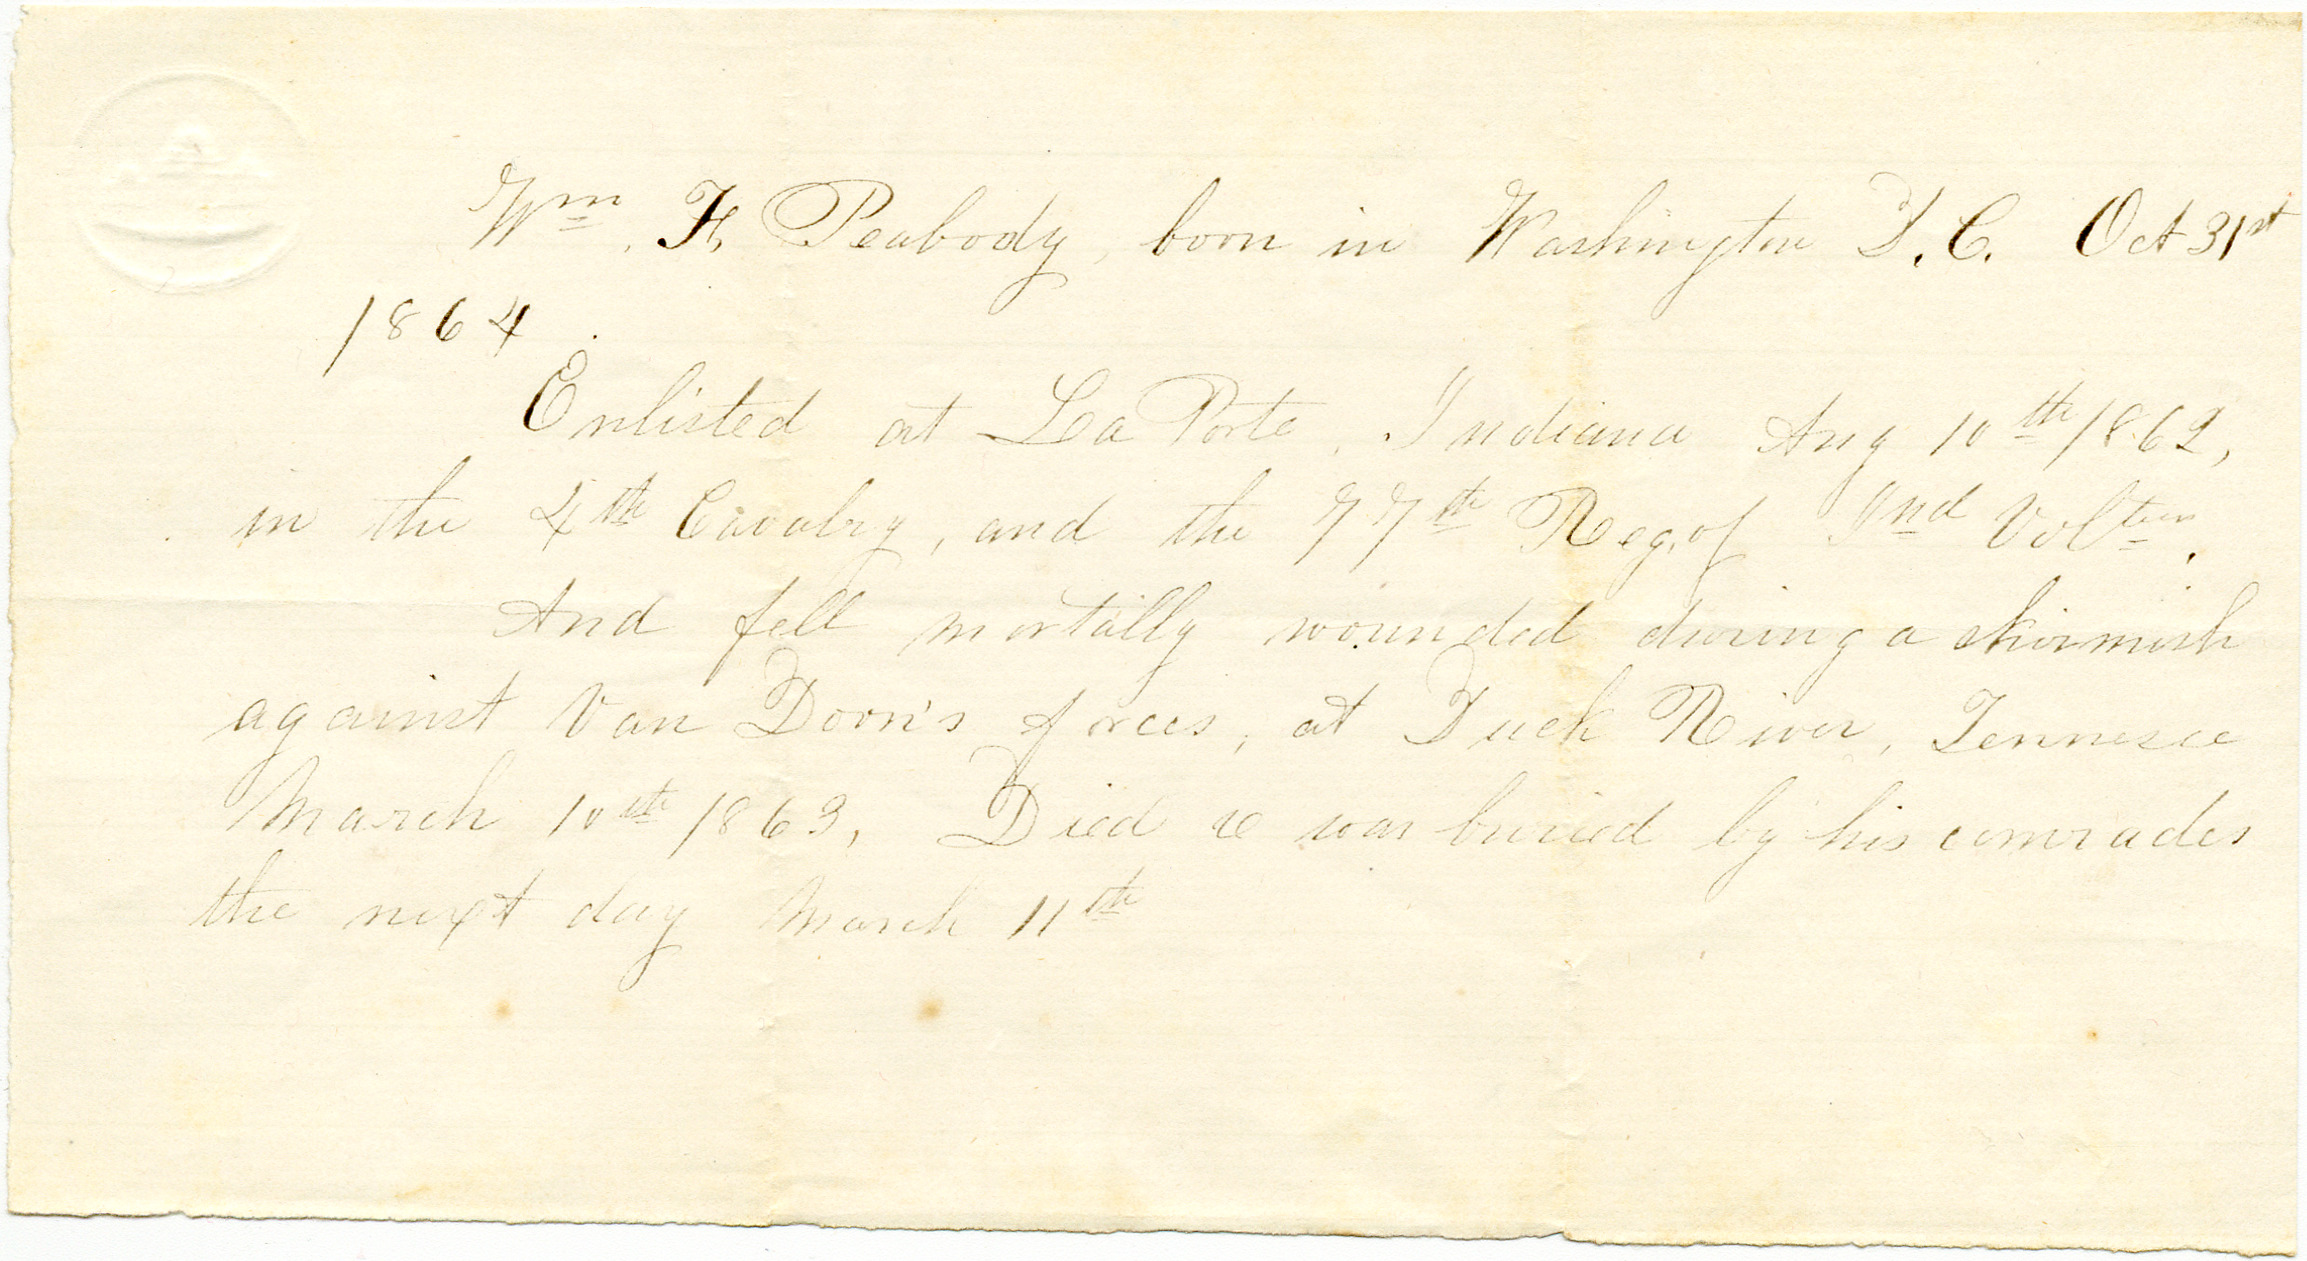 Wm. F. Peabody, born in Washington D.C. Oct 31st
1864.
Enlisted at La Porte, Indiana Aug 10th 1862,
in the 4th Cavalry, and the 77th Reg. of Ind Volteers.
And fell mortally wounded during a skirmish
against Van Dorn's forces, at Duck River, Tennesee
March 10th 1863, Died & was buried by his comrades
the next day March 11th